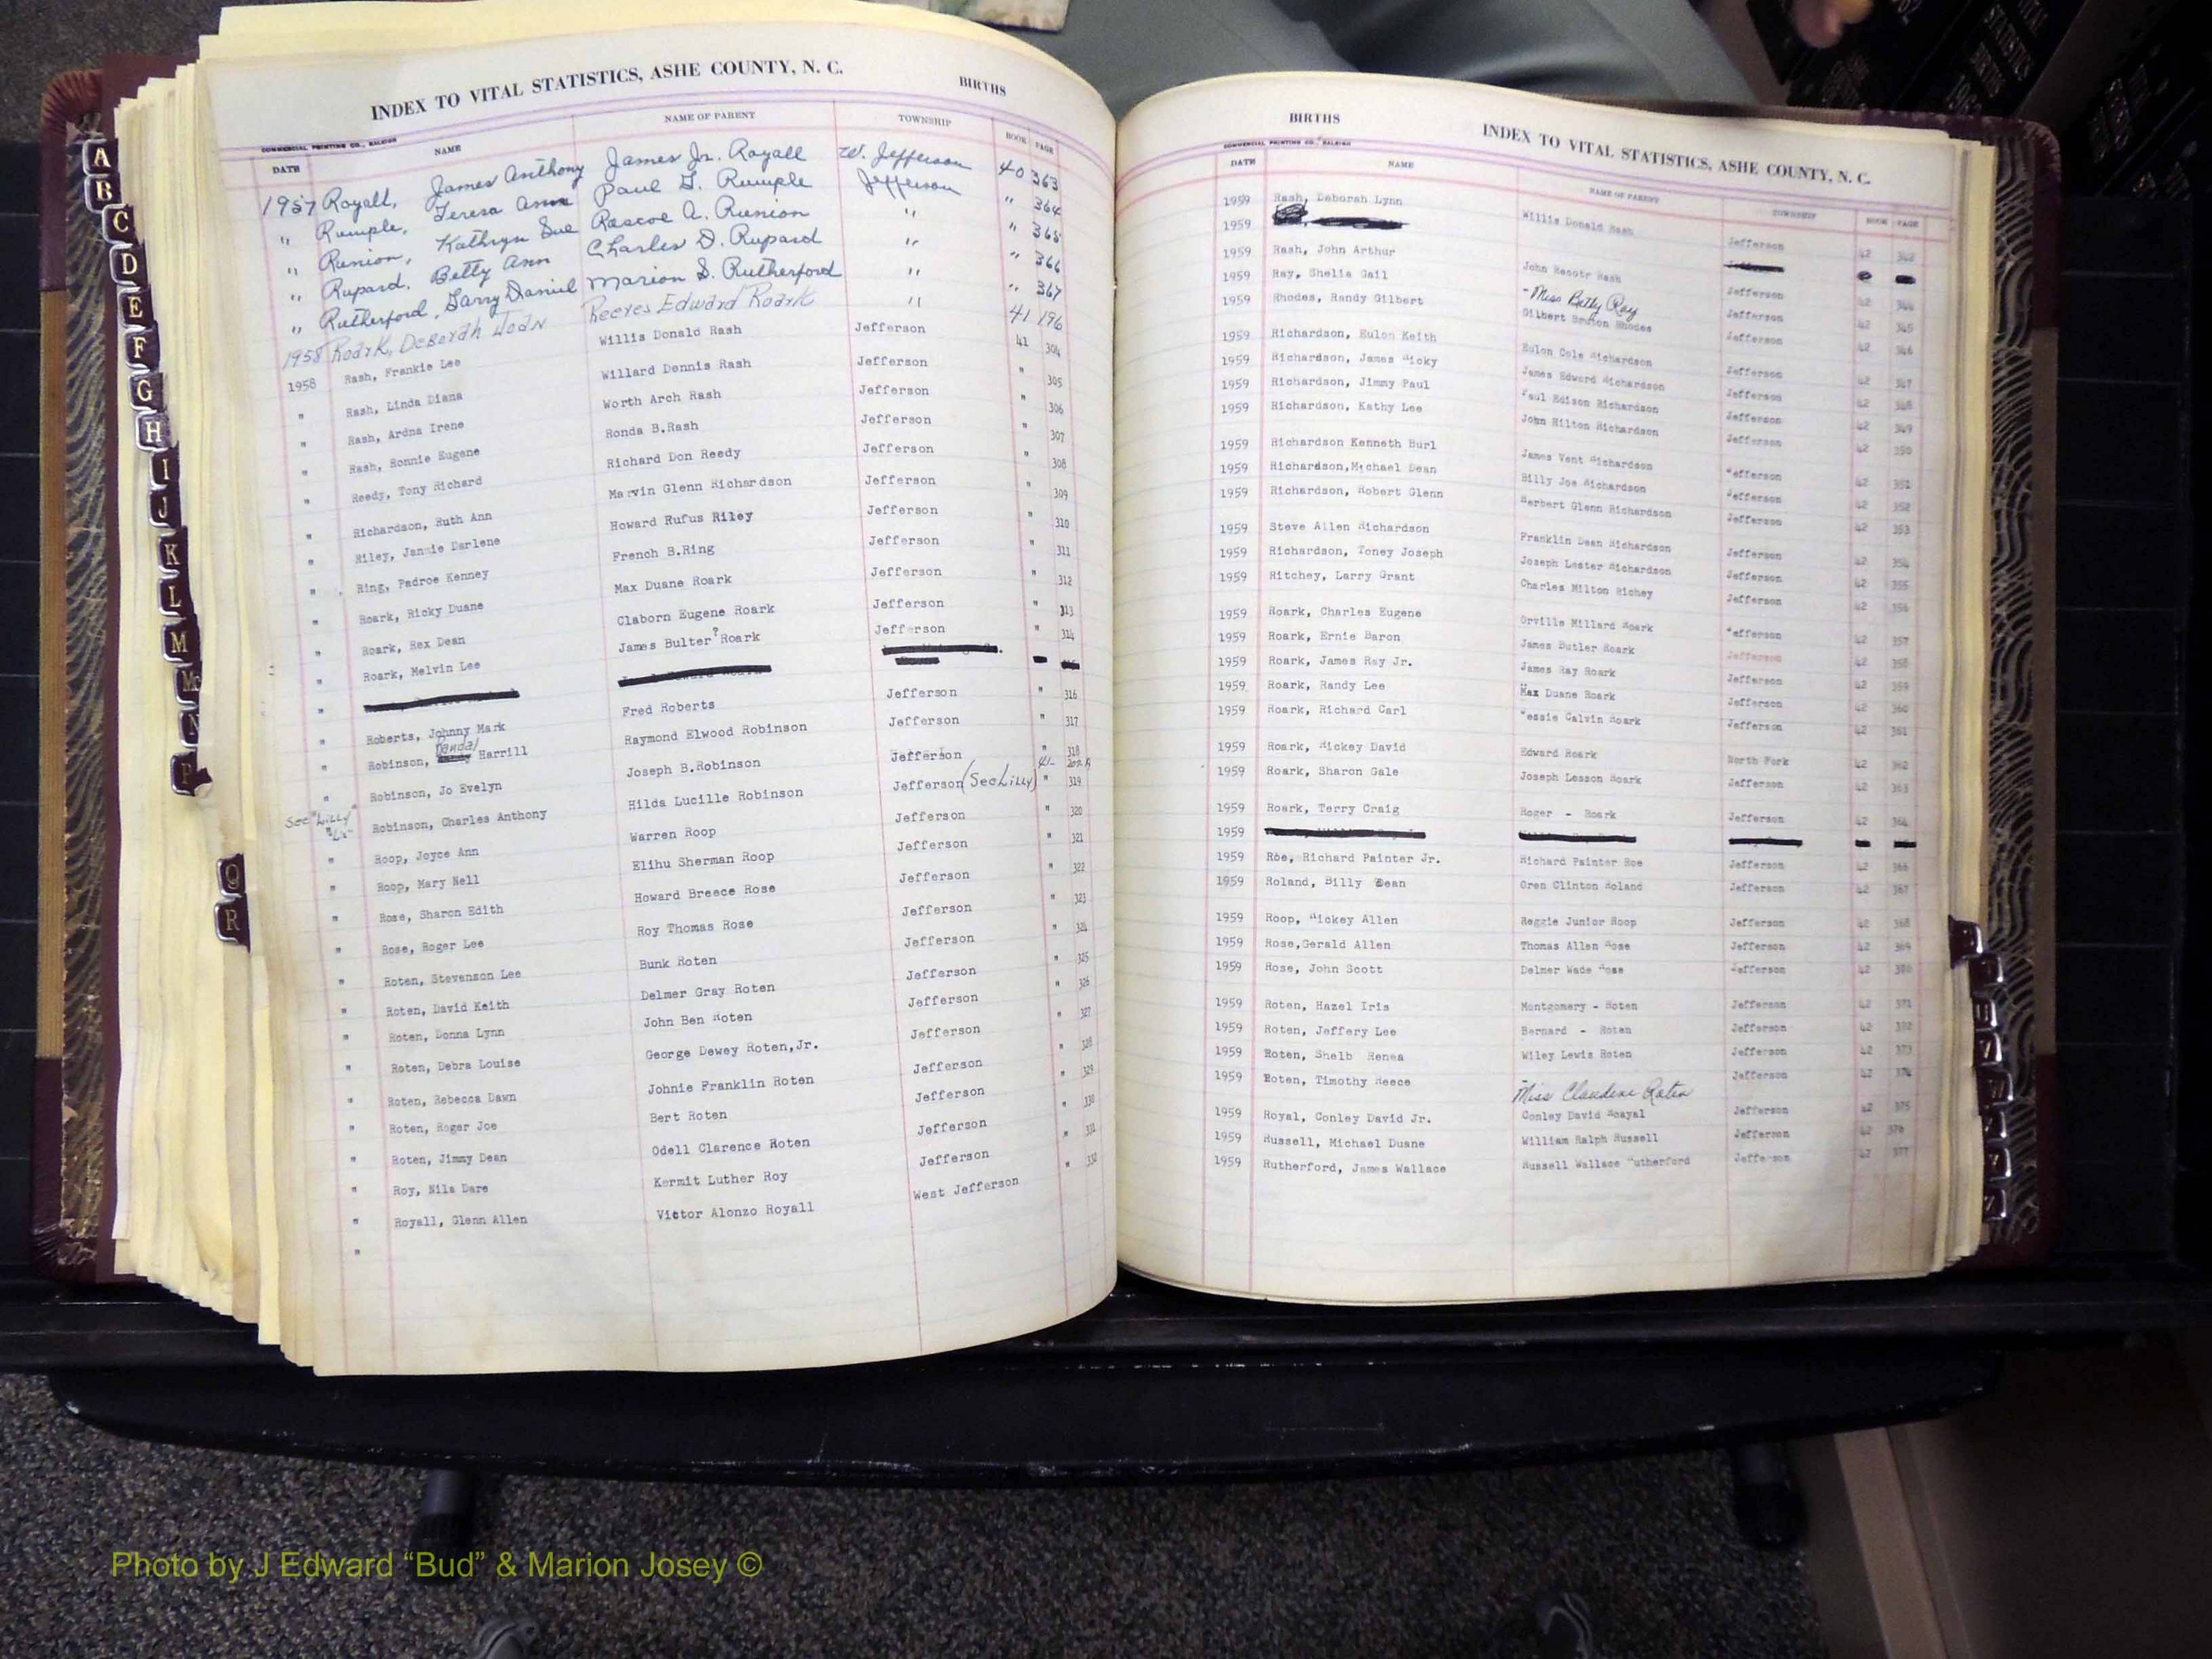 INDEX TO VITAL STATISTICS, ASHE COUNTY, N. C. BIRTHS
COMMERCIAL PRINTING CO., RALEIGH
DATE NAME NAME OF PARENT TOWNSHIP BOOK PAGE
1957 Royall, James Anthony James Jr. Royall W. Jefferson 40 363
" Rumple, Teresa Ann Paul G. Rumple Jefferson " 364
" Runion, Kathryn Sue Roscoe A. Runion " " 365
" Rupard, Betty Ann Charles D. Rupard " " 366
" Rutherford, Garry Daniel Marion S. Rutherford " " 367
1958 Roark, Deborah Joan Reeves Edward Roark " 41 196
1958 Rash, Frankie Lee Willis Donald Rash Jefferson 41 304
" Rash, Linda Diana Willard Dennis Rash Jefferson " 305
" Rash, Ardna Irene Worth Arch Rash Jefferson " 306
" Rash, Ronnie Eugene Ronda B.Rash Jefferson " 307
" Reedy, Tony Richard Richard Don Reedy Jefferson " 308
" Richardson, Ruth Ann Marvin Glenn Richardson Jefferson " 309
" Riley, Jannie Darlene Howard Rufus Riley Jefferson " 310
" Ring, Padroe Kenney French B.Ring Jefferson " 311
" Roark, Ricky Duane Max Duane Roark Jefferson " 312
" Roark, Rex Dean Claborn Eugene Roark Jefferson " 313
" Roark, Melvin Lee James Bulter?Roark Jefferson " 314
"
" Roberts, Johnny Mark Fred Roberts Jefferson " 316
" Robinson, Randal Harrill Raymond Elwood Robinson Jefferson " 317
" Robinson, Jo Evelyn Joseph B.Robinson Jefferson " 318
See "Lilly" Robinson, Charles Anthony Hilda Lucille Robinson Jefferson (See Lilly) " 319
" Roop, Joyce Ann Warren Roop Jefferson " 320
" Roop, Mary Nell Elihu Sherman Roop Jefferson " 321
" Rose, Sharon Edith Howard Breece Rose Jefferson " 322
" Rose, Roger Lee Roy Thomas Rose Jefferson " 323
" Roten, Stevenson Lee Bunk Roten Jefferson " 324
" Roten, David Keith Delmer Gray Roten Jefferson " 325
" Roten, Donna Lynn John Ben Roten Jefferson " 326
" Roten, Debra Louise George Dewey Roten,Jr. Jefferson " 327
" Roten, Rebecca Dawn Johnie Franklin Roten Jefferson " 328
" Roten, Roger Joe Bert Roten Jefferson " 329
" Roten, Jimmy Dean Odell Clarence Roten Jefferson " 330
" Roy, Nila Dare Kermit Luther Roy Jefferson " 331
" Royall, Glenn Allen Victor Alonzo Royall West Jefferson " 332
"
BIRTHS INDEX TO VITAL STATISTICS, ASHE COUNTY, N. C.
COMMERCIAL PRINTING CO., RALEIGH
DATE NAME NAME OF PARENT TOWNSHIP BOOK PAGE
1959 Rash, Deborah Lynn Willis Donald Rash Jefferson 42 342
1959
1959 Rash, John Arthur John Rash Jefferson 42 344
1959 Ray, Shelia Gail Miss Betty Ray Jefferson 42 345
1959 Rhodes, Randy Gilbert Gilbert Bruton Rhodes Jefferson 42 346
1959 Richardson, Eulon Keith Eulon Cole Richardson Jefferson 42 347
1959 Richardson, James Ricky James Edward Richardson Jefferson 42 348
1959 Richardson, Jimmy Paul Paul Edison Richardson Jefferson 42 349
1959 Richardson, Kathy Lee John Hilton Richardson Jefferson 42 350
1959 Richardson Kenneth Burl James Vent Richardson Jefferson 42 351
1959 Richardson,Michael Dean Billy Joe Richardson Jefferson 42 352
1959 Richardson, Robert Glenn Herbert Glenn Richardson Jefferson 42 353
1959 Steve Allen Richardson Franklin Dean Richardson Jefferson 42 354
1959 Richardson, Toney Joseph Joseph Lester Richardson Jefferson 42 355
1959 Ritchey, Larry Grant Charles Milton Richey Jefferson 42 356
1959 Roark, Charles Eugene Orville Millard Roark Jefferson 42 357
1959 Roark, Ernie Baron James Butler Roark Jefferson 42 358
1959 Roark, James Ray Jr. James Ray Roark Jefferson 42 359
1959 Roark, Randy Lee Max Duane Roark Jefferson 42 360
1959 Roark, Richard Carl Jessie Calvin Roark Jefferson 42 361
1959 Roark, Rickey David Edward Roark North Fork 42 362
1959 Roark, Sharon Gale Joseph Lesson Roark Jefferson 42 363
1959 Roark, Terry Craig Roger - Roark Jefferson 42 364
1959
1959 Roe, Richard Painter Jr. Richard Painter Roe Jefferson 42 366
1959 Roland, Billy Dean Oren Clinton Roland Jefferson 42 367
1959 Roop, Rickey Allen Reggie Junior Roop Jefferson 42 368
1959 Rose,Gerald Allen Thomas Allen Rose Jefferson 42 369
1959 Rose, John Scott Delmer Wade Rose Jefferson 42 370
1959 Roten, Hazel Iris Montgomery - Roten Jefferson 42 371
1959 Roten, Jeffery Lee Bernard - Roten Jefferson 42 372
1959 Roten, Shelb Renea Wiley Lewis Roten Jefferson 42 373
1959 Roten, Timothy Reece Miss Claudene Roten Jefferson 42 374
1959 Royal, Conley David Jr. Conley David Royal Jefferson 42 375
1959 Russell, Michael Duane William Ralph Russell Jefferson 42 376
1959 Rutherford, James Wallace Russell Wallace Rutherford Jefferson 42 377
A
B
C
D
E
F
G
H
I
J
K
L
M
Mc
N
P
Q
R
Photo by J Edward “Bud” & Marion Josey ©